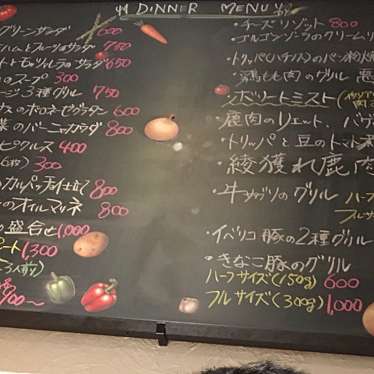 DINNER MENU
グリーンサラダ 600
ハムとフルーツのサラダ 750
トマトとモッツァレラのサラダ 650
のスープ 300
ージ3種グリル 750
のボロネーゼグラタン 600
菜のバーニャカウダ 800
ピクルス 400
(6枚) 300
カルパッチョ仕立て 800
のオイルマリネ 800
の盛合せ 1,000
ート 1,300
・チーズリゾット 800
・ゴルゴンゾーラのクリームリ
・トリッパ(ハチノス)のパン粉
・鶏もも肉のグリル
・ボリートミスト
・鹿肉のリエット、バゲ
・トリッパと豆のトマト
・綾獲れ鹿肉
・牛サガリのグリル
ハーフサ
フルサ
・イベリコ豚の2種グリル
・きなこ豚のグリル
ハーフサイズ(150g) 600
フルサイズ(300g) 1,000